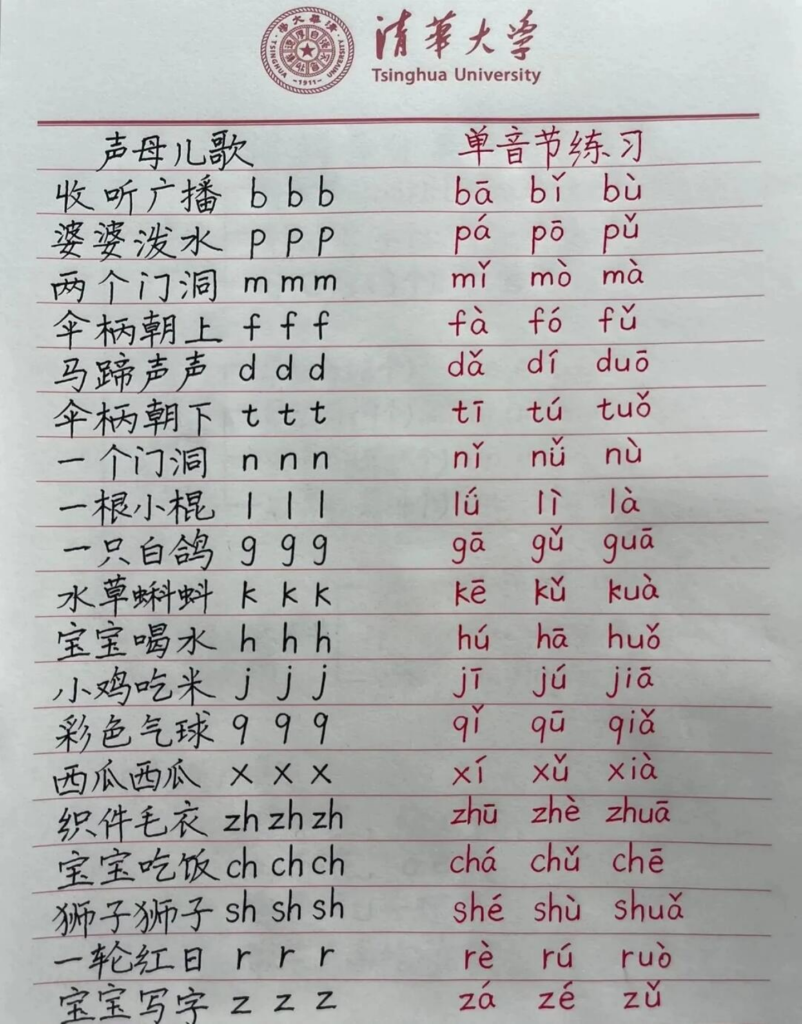 清华大学
Tsinghua University
声母儿歌 单音节练习
收听广播 b b b bā bǐ bù
婆婆泼水 p p p pá pō pǔ
两个门洞 m m m mǐ mò mà
伞柄朝上 f f f fà fó fǔ
马蹄声声 d d d dǎ dí duō
伞柄朝下 t t t tī tú tuǒ
一个门洞 n n n nǐ nǚ nù
一根小棍 l l l lǘ lì là
一只白鸽 g g g gā gǔ guā
水草蝌蚪 k k k kē kǔ kuà
宝宝喝水 h h h hú hā huǒ
小鸡吃米 j j j jī jú jiā
彩色气球 q q q qǐ qū qiǎ
西瓜西瓜 x x x xí xǔ xià
织件毛衣 zh zh zh zhū zhè zhuā
宝宝吃饭 ch ch ch chá chǔ chē
狮子狮子 sh sh sh shé shù shuǎ
一轮红日 r r r rè rú ruò
宝宝写字 z z z zá zé zǔ